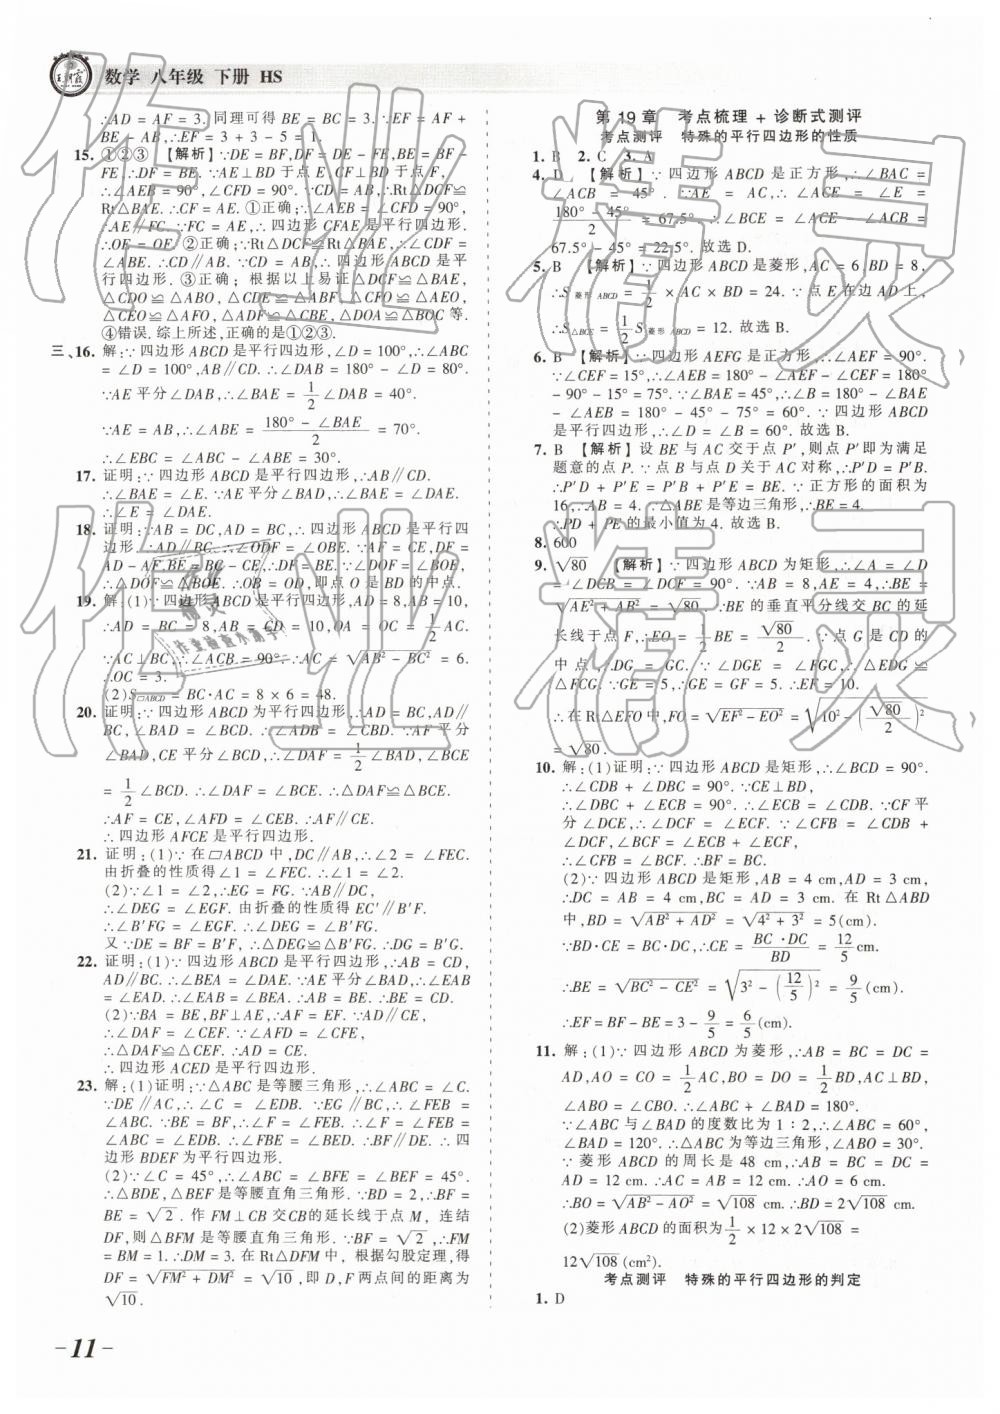 王朝霞
数学 八年级 下册 HS
∴AD = AF = 3. 同理可得 BE = BC = 3. ∵EF = AF +
BE − AB, ∴EF = 3 + 3 − 5 = 1.
15. ①②③ 【解析】∵DE = BF, DF = DE − FE, BE = BF −
FE, ∴DF = BE. ∵AE⊥BD 于点 E, CF⊥BD 于点 F,
∴∠AEB = 90°, ∠CFD = 90°. ∵AB = CD, ∴Rt△DCF≌
Rt△BAE. ∴CF = AE. ①正确; ∵∠AEB = ∠CFD = 90°,
∴AE∥FC. ∵FC = AE, ∴四边形 CFAE 是平行四边形.
∴OE = OF. ②正确; ∵Rt△DCF≌Rt△BAE, ∴∠CDF =
∠ABE. ∴CD∥AB. ∵CD = AB, ∴四边形 ABCD 是平
行四边形. ③正确; 根据以上易证△DCF≌△BAE,
△CDO≌△ABO, △CDE≌△ABF, △CFO≌△AEO,
△CEO≌△AFO, △ADF≌△CBE, △DOA≌△BOC 等.
④错误. 综上所述, 正确的是①②③.
三、16. 解: ∵四边形 ABCD 是平行四边形, ∠D = 100°, ∴∠ABC
= ∠D = 100°, AB∥CD. ∴∠DAB = 180° − ∠D = 80°.
∵AE 平分∠DAB, ∴∠BAE = 1/2 ∠DAB = 40°.
∵AE = AB, ∴∠ABE = (180° − ∠BAE)/2 = 70°.
∴∠EBC = ∠ABC − ∠ABE = 30°.
17. 证明: ∵四边形 ABCD 是平行四边形, ∴AB∥CD.
∴∠BAE = ∠E. ∵AE 平分∠BAD, ∴∠BAE = ∠DAE.
∴∠E = ∠DAE.
18. 证明: ∵AB = DC, AD = BC, ∴四边形 ABCD 是平行四
边形. ∴AD∥BC. ∴∠ODF = ∠OBE. ∵AF = CE, DF =
AD − AF, BE = BC − CE, ∴DF = BE. ∵∠DOF = ∠BOE,
∴△DOF≌△BOE. ∴OD = OB, 即点 O 是 BD 的中点.
19. 解: (1)∵四边形 ABCD 是平行四边形, AD = 8, AB = 10,
∴AD = BC = 8, AB = CD = 10, OA = OC = 1/2 AC.
∵AC⊥BC, ∴∠ACB = 90°. ∴AC = √(AB² − BC²) = 6.
∴OC = 3.
(2)S▱ABCD = BC·AC = 8 × 6 = 48.
20. 证明: ∵四边形 ABCD 为平行四边形, ∴AD = BC, AD∥
BC, ∠BAD = ∠BCD. ∴∠ADB = ∠CBD. ∵AF 平分
∠BAD, CE 平分∠BCD, ∴∠DAF = 1/2 ∠BAD, ∠BCE
= 1/2 ∠BCD. ∴∠DAF = ∠BCE. ∴△DAF≌△BCE.
∴AF = CE, ∠AFD = ∠CEB. ∴AF∥CE.
∴四边形 AFCE 是平行四边形.
21. 证明: (1)∵在▱ABCD 中, DC∥AB, ∴∠2 = ∠FEC.
由折叠的性质得∠1 = ∠FEC. ∴∠1 = ∠2.
(2)∵∠1 = ∠2, ∴EG = FG. ∵AB∥DC,
∴∠DEG = ∠EGF. 由折叠的性质得 EC′∥B′F.
∴∠B′FG = ∠EGF. ∴∠DEG = ∠B′FG.
又∵DE = BF = B′F, ∴△DEG≌△B′FG. ∴DG = B′G.
22. 证明: (1)∵四边形 ABCD 是平行四边形, ∴AB = CD,
AD∥BC. ∴∠BEA = ∠DAE. ∵AE 平分∠BAD, ∴∠EAB
= ∠EAD. ∴∠BEA = ∠EAB. ∴AB = BE. ∴BE = CD.
(2)∵BA = BE, BF⊥AE, ∴AF = EF. ∵AD∥CE,
∴∠DAF = ∠CEF. ∵∠AFD = ∠CFE,
∴△DAF≌△CEF. ∴AD = CE.
∴四边形 ACED 是平行四边形.
23. 解: (1)证明: ∵△ABC 是等腰三角形, ∴∠ABC = ∠C.
∵DE∥AC, ∴∠C = ∠EDB. ∵EG∥BC, ∴∠FEB =
∠ABC. ∵BE = BF, ∴∠F = ∠FEB. ∴∠F = ∠FEB =
∠ABC = ∠EDB. ∴∠FBE = ∠BED. ∴BF∥DE. ∴四
边形 BDEF 为平行四边形.
(2)∵∠C = 45°, ∴∠ABC = ∠BFE = ∠BEF = 45°.
∴△BDE, △BEF 是等腰直角三角形. ∵BD = 2, ∴BF =
BE = √2. 作 FM⊥CB 交 CB 的延长线于点 M, 连结
DF, 则△BFM 是等腰直角三角形. ∵BF = √2, ∴FM
= BM = 1. ∴DM = 3. 在 Rt△DFM 中, 根据勾股定理, 得
DF = √(FM² + DM²) = √10, 即 D, F 两点间的距离为
√10.
第 19 章 考点梳理 + 诊断式测评
考点测评 特殊的平行四边形的性质
1. B 2. C 3. A
4. D 【解析】∵四边形 ABCD 是正方形, ∴∠BAC =
∠ACB = 45°. ∵AE = AC, ∴∠ACE = ∠E =
(180° − 45°)/2 = 67.5°. ∴∠BCE = ∠ACE − ∠ACB =
67.5° − 45° = 22.5°. 故选 D.
5. B 【解析】∵四边形 ABCD 是菱形, AC = 6, BD = 8,
∴S菱形ABCD = 1/2 × AC × BD = 24. ∵点 E 在边 AD 上,
∴S△BCE = 1/2 S菱形ABCD = 12. 故选 B.
6. B 【解析】∵四边形 AEFG 是正方形, ∴∠AEF = 90°.
∵∠CEF = 15°, ∴∠AEB = 180° − ∠AEF − ∠CEF = 180°
− 90° − 15° = 75°. ∵∠BAE = 45°, ∴∠B = 180° − ∠BAE
− ∠AEB = 180° − 45° − 75° = 60°. ∵四边形 ABCD
是平行四边形, ∴∠D = ∠B = 60°. 故选 B.
7. B 【解析】设 BE 与 AC 交于点 P′, 则点 P′即为满足
题意的点 P. ∵点 B 与点 D 关于 AC 对称, ∴P′D = P′B.
∴P′D + P′E = P′B + P′E = BE. ∵正方形的面积为
16, ∴AB = 4. ∵△ABE 是等边三角形, ∴BE = 4.
∴PD + PE 的最小值为 4. 故选 B.
8. 600
9. √80 【解析】∵四边形 ABCD 为矩形, ∴∠A = ∠D
= ∠DCB = ∠DCF = 90°. ∵AB = 8, AE = 4, ∴BE =
√(AE² + AB²) = √80. ∵BE 的垂直平分线交 BC 的延
长线于点 F, ∴EO = 1/2 BE = √80/2. ∵点 G 是 CD 的
中点, ∴DG = CG. ∵∠DGE = ∠FGC, ∴△EDG ≌
△FCG. ∵GE = 5, ∴GE = GF = 5. ∴EF = 10.
∴在 Rt△EFO 中, FO = √(EF² − EO²) = √(10² − (√80/2)²)
= √80.
10. 解: (1)证明: ∵四边形 ABCD 是矩形, ∴∠BCD = 90°.
∴∠CDB + ∠DBC = 90°. ∵CE⊥BD,
∴∠DBC + ∠ECB = 90°. ∴∠ECB = ∠CDB. ∵CF 平
分∠DCE, ∴∠DCF = ∠ECF. ∵∠CFB = ∠CDB +
∠DCF, ∠BCF = ∠ECB + ∠ECF,
∴∠CFB = ∠BCF. ∴BF = BC.
(2)∵四边形 ABCD 是矩形, AB = 4 cm, AD = 3 cm,
∴DC = AB = 4 cm, BC = AD = 3 cm. 在 Rt△ABD
中, BD = √(AB² + AD²) = √(4² + 3²) = 5(cm).
∵BD·CE = BC·DC, ∴CE = BC·DC/BD = 12/5 cm.
∴BE = √(BC² − CE²) = √(3² − (12/5)²) = 9/5(cm).
∴EF = BF − BE = 3 − 9/5 = 6/5(cm).
11. 解: (1)∵四边形 ABCD 为菱形, ∴AB = BC = DC =
AD, AO = CO = 1/2 AC, BO = DO = 1/2 BD, AC⊥BD,
∠ABO = ∠CBO. ∴∠ABC + ∠BAD = 180°.
∵∠ABC 与∠BAD 的度数比为 1∶2, ∴∠ABC = 60°,
∠BAD = 120°. ∴△ABC 为等边三角形, ∠ABO = 30°.
∵菱形 ABCD 的周长是 48 cm, ∴AB = BC = DC =
AD = 12 cm. ∴AC = AB = 12 cm. ∴AO = 6 cm.
∴BO = √(AB² − AO²) = √108 cm. ∴BD = 2√108 cm.
(2)菱形 ABCD 的面积为 1/2 × 12 × 2√108 =
12√108 (cm²).
考点测评 特殊的平行四边形的判定
1. D
− 11 −